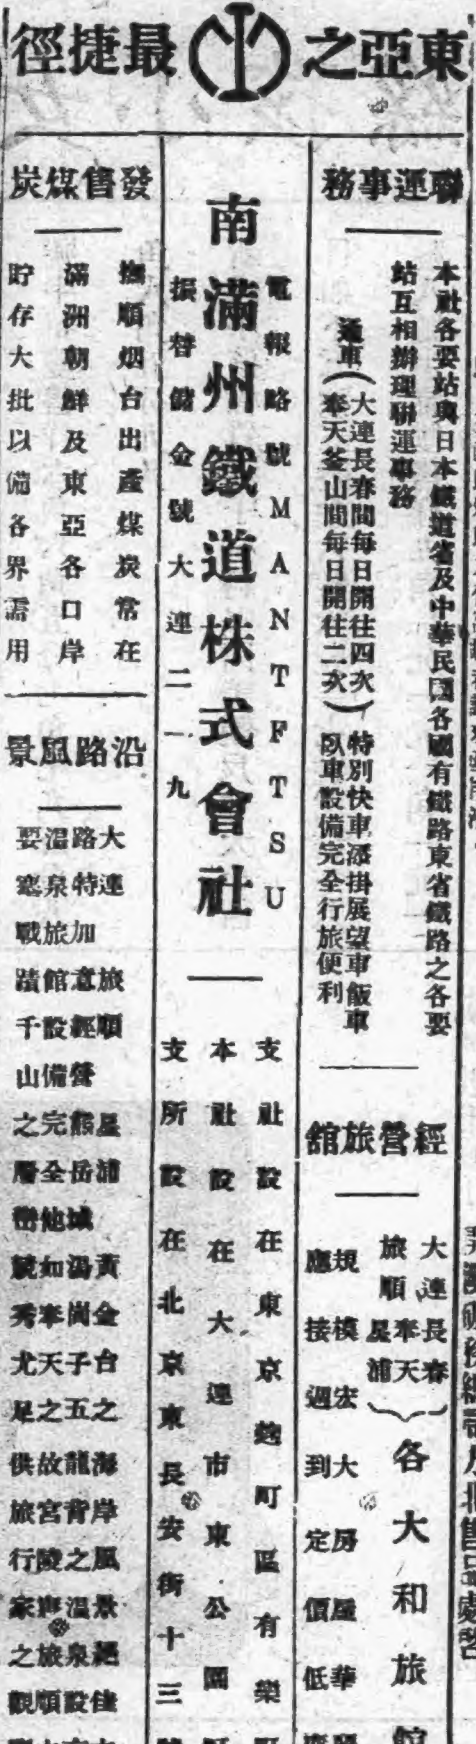 東亞之最捷徑
聯運事務
本社各要站與日本鐵道省及中華民國各國有鐵路東省鐵路之各要
站互相辦理聯運事務
通車(大連長春間每日開往四次
奉天釜山間每日開往二次)
特別快車添掛展望車飯車
臥車設備完全行旅便利
經營旅館
大連長春
旅順奉天
星浦
各大和旅館
規模宏大房屋華
應接週到定價低
電報略號MANTFTSU
南滿州鐵道株式會社
振替儲金號大連二一九
支社設在東京麴町區有樂
本社設在大連市東公園
支所設在北京東長安街十三
發售煤炭
撫順烟台出產煤炭常在
滿洲朝鮮及東亞各口岸
貯存大批以備各界需用
沿路風景
大連 旅順 星浦 黃金台之海岸風景絕佳
路特加意經營熊岳城湯崗子五龍背之溫泉設
溫泉旅館設備完全他如奉天之故宮陵寢旅順
要塞戰蹟千山之層巒競秀尤足供旅行家之觀